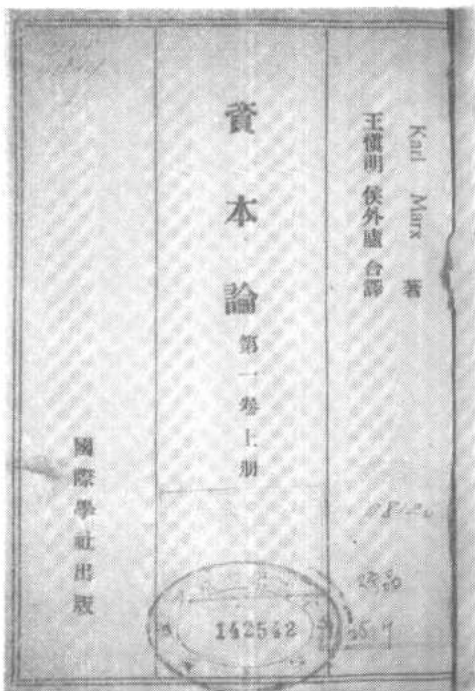 Karl Marx 著
王愼明 侯外廬 合譯
資本論 第一卷上册
國際學社出版
142542